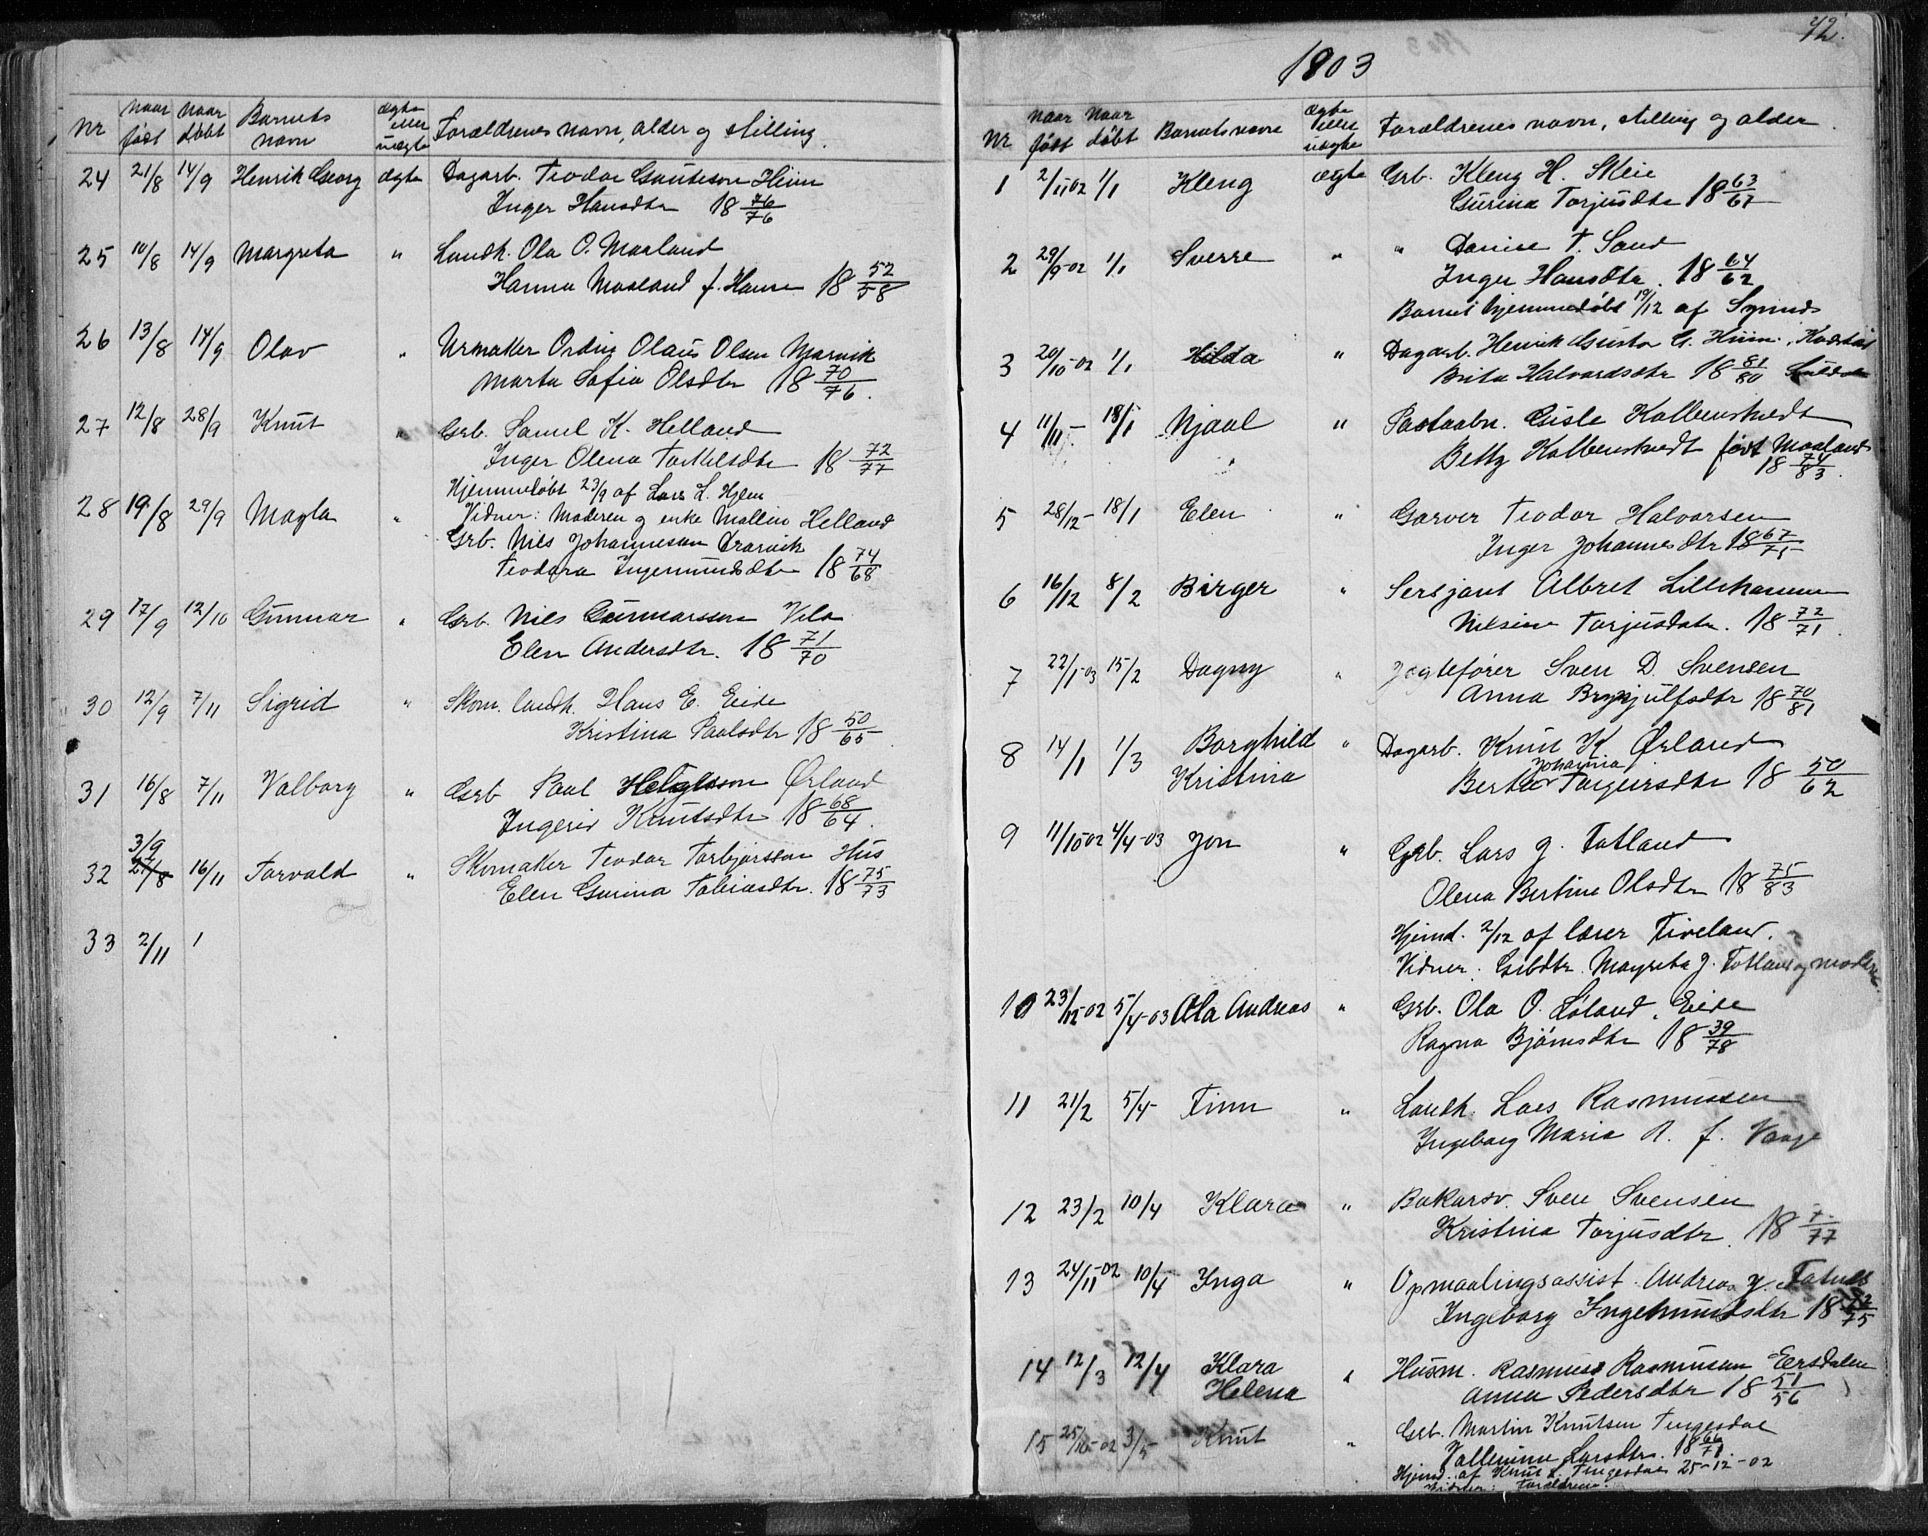 Nr naar født Naar døbt Barnets navn ægte eller uægte Forældrenes navn, alder og stilling
24 21/8 14/9 Henrik Georg ægte Dagarb. Teodor Gauteson Hiim
Inger Hansdtr 18 76/76
25 10/8 14/9 Margreta " Landh. Ola O. Maaland
Hanna Maaland f. Hansen 18 52/58
26 13/8 14/9 Olav " Urmaker Ordin Olaus Olsen Mjarvik
Marta Sofia Olsdtr 18 70/76.
27 12/8 28/9 Knut " Grb. Samel K. Helland
Inger Olena Torkilsdtr 18 72/77
Hjemmedøbt 23/9 af Lars L. Hjem
28 19/8 29/9 Magla " Vidner: Moderen og enke Mallin Helland
Grb. Nils Johannesen Drarvik
Teodora Ingemundsdtr 18 74/68
29 17/9 12/10 Gunnar " Grb. Nils Gunnarsson Vela
Elen Andersdtr. 18 71/70
30 12/9 7/11 Sigrid " Skom. landh. Hans E. Eide
Kristina Paalsdtr 18 50/65
31 16/8 7/11 Valborg " Grb Paul Helgesson Ørland
Ingerid Knutsdtr 18 68/64.
3/9
32 27/8 16/11 Torvald " Skomaker Teodor Torbjørsson Hus
Elen Gurina Tobiasdtr. 18 75/73
33 2/11 1
42.
1903
Nr naar født Naar døbt Barnets navn ægte eller uægte Forældrenes navn, stilling og alder.
1 2/11 02 1/1 Kleng ægte Grb. Kleng H. Skeie
Gurina Torjusdtr 18 63/67
2 29/9-02 1/1 Sverre " " Daniel T. Sand
Inger Hansdtr. 18 64/62
Barnet hjemmedøbt 19/12 af
3 20/10-02 1/1 Hilda " Dagarb. Henrik Gustav G. Hiim,
Brita Halvardsdtr 18 81/80 Suldal
4 11/11- 18/1 Njaal " Postaabn. Gisle Kolbenstvedt
Betty Kolbenstvedt født Maaland
18 74/83.
5 28/12- 18/1 Elen " Garver Teodor Halvorsen
Inger Johannesdtr 18 67/75
6 16/12 8/2 Birger " Sersjant Albret Lillehammer
Nilsine Torjusdatr. 18 72/71.
7 22/1-03 15/2 Dagny " Jegtefører Sven D. Svensen
Anna Brynjulfsdtr 18 70/81
8 14/1 1/3 Borghild Kristina " Dagarb. Knut K Ørland
Johanna
Berta Torgeirsdtr 18 50/62
9 11/10 02 4/4-03 Jon " Grb. Lars J. Totland
Olena Bertine Olsdtr 18 75/83
Hjemd. 2/12 af lærer Tiveland.
Vidner. Grbdtr. Magreta J. Totland og moderen
10 23/12-02 5/4-03 Ola Andreas " Grb. Ola O. Løland, Eide
Ragna Bjørnsdtr 18 39/78
11 21/2 5/4- Finn " Landh. Lars Rasmussen
Ingeborg Maria R. f. Vaage
12 23/2 10/4 Klara " Bakarsv. Sven Svensen
Kristina Torjusdtr. 18 7/77
13 24/11-02 10/4 Inga " Opmaalingsassist. Andreas J.
Ingeborg Ingemundsdtr 18 72/75
14 12/3 12/4 Klara Helena " Husm. Rasmus Rasmusen Eersdalen
Anna Pedersdtr 18 51/56
15 25/10-02 3/5 Knut " Grb. Martin Knutsen Tengesdal
Valleninne Larsdtr. 18 66/71.
Hjemd. af Knut L. Tengesdal 25-12-02
Vidner: Forældrene.